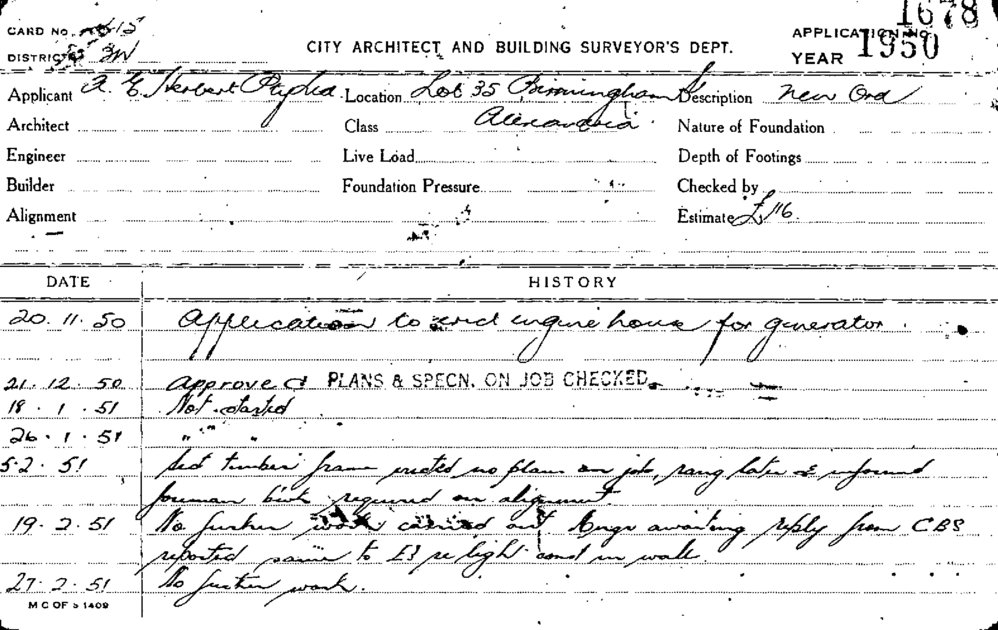 1678
CARD NO. 415 APPLICATION NO.
DISTRICT 3W CITY ARCHITECT AND BUILDING SURVEYOR'S DEPT. YEAR 1950
Applicant A. E. Herbert Location Lot 35 Birmingham St Description New Ord
Architect Class Alexandria Nature of Foundation
Engineer Live Load Depth of Footings
Builder Foundation Pressure Checked by
Alignment Estimate £116
DATE HISTORY
20.11.50 Application to erect engine house for generator.
21.12.50 Approved PLANS & SPECN. ON JOB CHECKED.
18.1.51 Not started
26.1.51 " "
5.2.51 timber frame erected no plans on job, rang later & informed
foreman brick required on alignment
19.2.51 No further work carried out. awaiting reply from CBS
reported same to re light in wall.
27.2.51 No further work.
M C OF S 1409